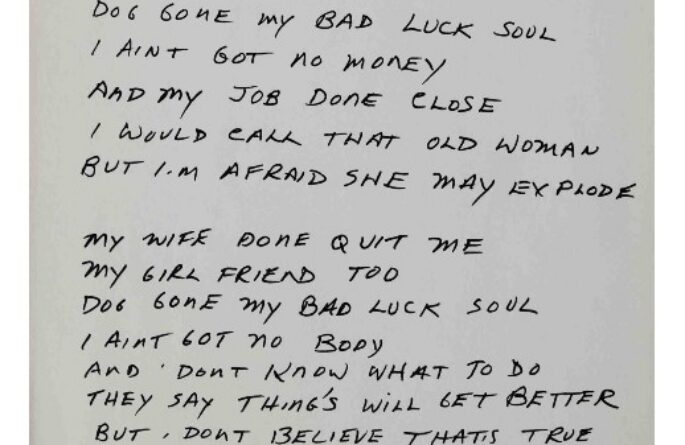 DOG GONE MY BAD LUCK SOUL
I AINT GOT NO MONEY
AND MY JOB DONE CLOSE
I WOULD CALL THAT OLD WOMAN
BUT I.M AFRAID SHE MAY EXPLODE
MY WIFE DONE QUIT ME
MY GIRL FRIEND TOO
DOG GONE MY BAD LUCK SOUL
I AINT GOT NO BODY
AND . DONT KNOW WHAT TO DO
THEY SAY THING'S WILL GET BETTER
BUT . DONT BELIEVE THATIS TRUE